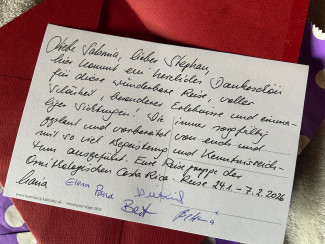 Liebe Sabrina, lieber Stephan,
hier kommt ein herzliches Dankeschön
für diese wunderbare Reise, voller
Schönheit, besonderer Erlebnisse und einma-
liger Sichtungen! Die immer sorgfältig
geplant und vorbereitet von euch und
mit so viel Begeisterung und Kenntnisreich-
tum ausgeführt. Eure Reisegruppe der
Ornithologischen Costa Rica-Reise 24.1. - 7.2.2026
Elena
Beat